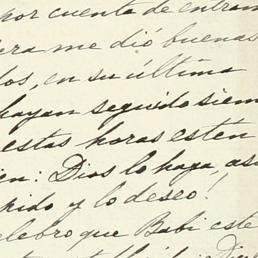 por cuenta de entram
era me dió buenas
dos, en su última
hayan seguido siem
estas horas estén
en: Dios lo haga, así
pido y lo deseo!
celebro que Babi esté